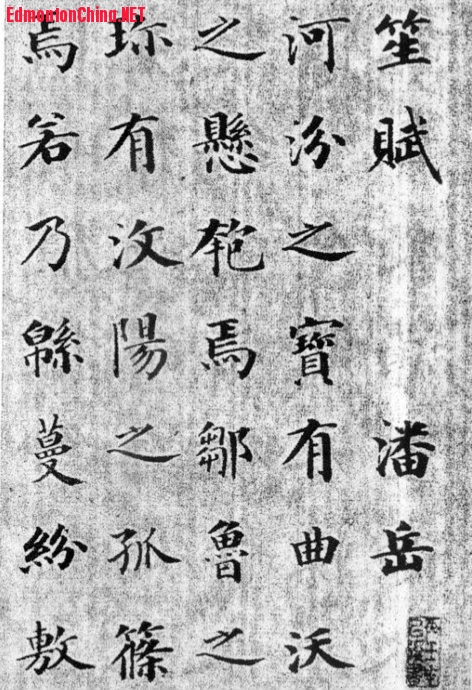 EdmontonChina.NET
笙賦 潘岳
河汾之寶有曲沃
之懸匏焉鄒魯之
珎有汶陽之孤篠
焉若乃緜蔓紛敷